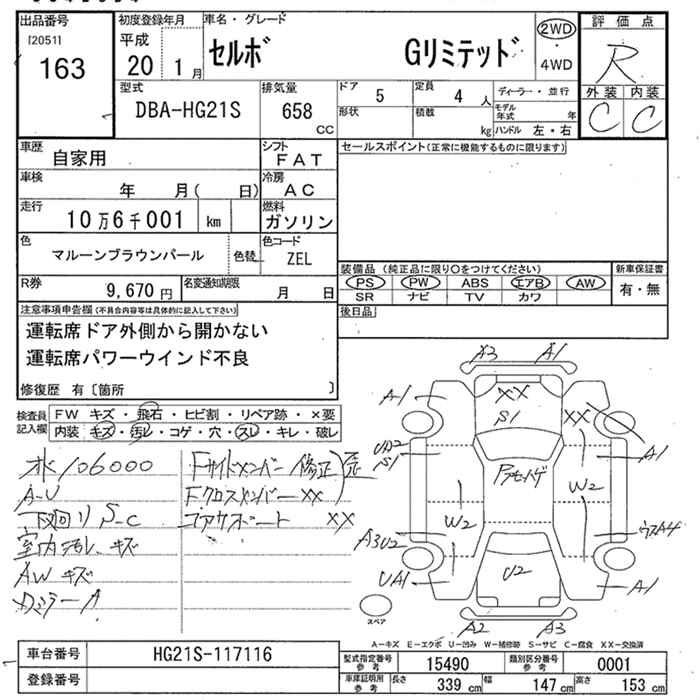 出品番号
[2051]
163
初度登録年月
平成
20 1月
車名・グレード
セルボ Gリミテッド
2WD
・
4WD
評価点
R
外装 内装
C C
型式
DBA-HG21S
排気量
658
CC
ドア 5
定員 4 人
ディーラー・並行
形状
積載 kg
モデル年式 年
ハンドル 左・右
車歴
自家用
シフト
FAT
セールスポイント(正常に機能するものに限ります)
車検
年 月( 日)
冷房
AC
走行
10万6千001 km
燃料
ガソリン
色
マルーンブラウンパール
色替
色コード
ZEL
装備品 (純正品に限り○をつけてください)
新車保証書
PS PW ABS エアB AW
有・無
SR ナビ TV カワ
R券
9,670円
名変通知期限
月 日
後日品
注意事項申告欄(不具合内容等は具体的に記入して下さい)
運転席ドア外側から開かない
運転席パワーウインド不良
修復歴 有〔箇所 〕
検査員記入欄
FW キズ・飛石・ヒビ割・リペア跡・×要
内装 キズ・汚レ・コゲ・穴・スレ・キレ・破レ
106000
A-U
下回り S-C
室内汚レ、キズ
AW キズ
Fサイドメンバー 修正
Fクロスメンバー XX
コアサポート XX
A3 A1
A1 XX XX
S1
UD2
S1
A1
W2
W2
A3U2
UA1
U2
A1
A2 A3
スペア
A-キズ E-エクボ U-凹み W-補修跡 S-サビ C-腐食 XX-交換済
車台番号
HG21S-117116
登録番号
型式指定番号 参考 15490
類別区分番号 参考 0001
車庫証明用 参考
長さ 339 cm
幅 147 cm
高さ 153 cm